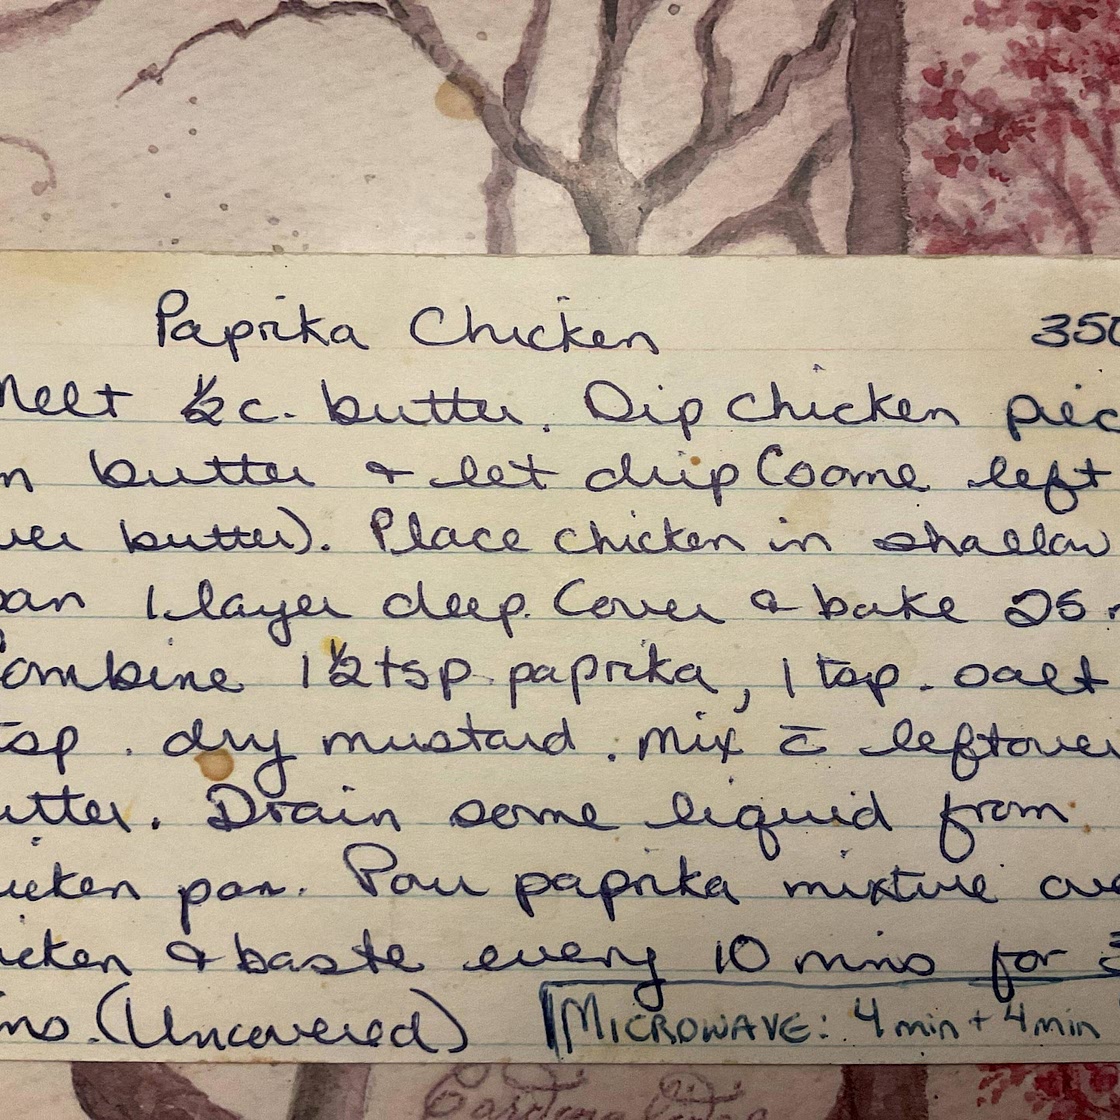 Paprika Chicken 350
Melt ½ c. butter. Dip chicken piec
n butter & let drip (some left
ver butter). Place chicken in shallow
pan 1 layer deep. Cover & bake 25
Combine 1½ tsp paprika, 1 tsp. salt
tsp. dry mustard. Mix c̄ leftover
utter. Drain some liquid from
icken pan. Pour paprika mixture ove
icken & baste every 10 mins for 3
ins. (Uncovered)
MICROWAVE: 4 min + 4 min